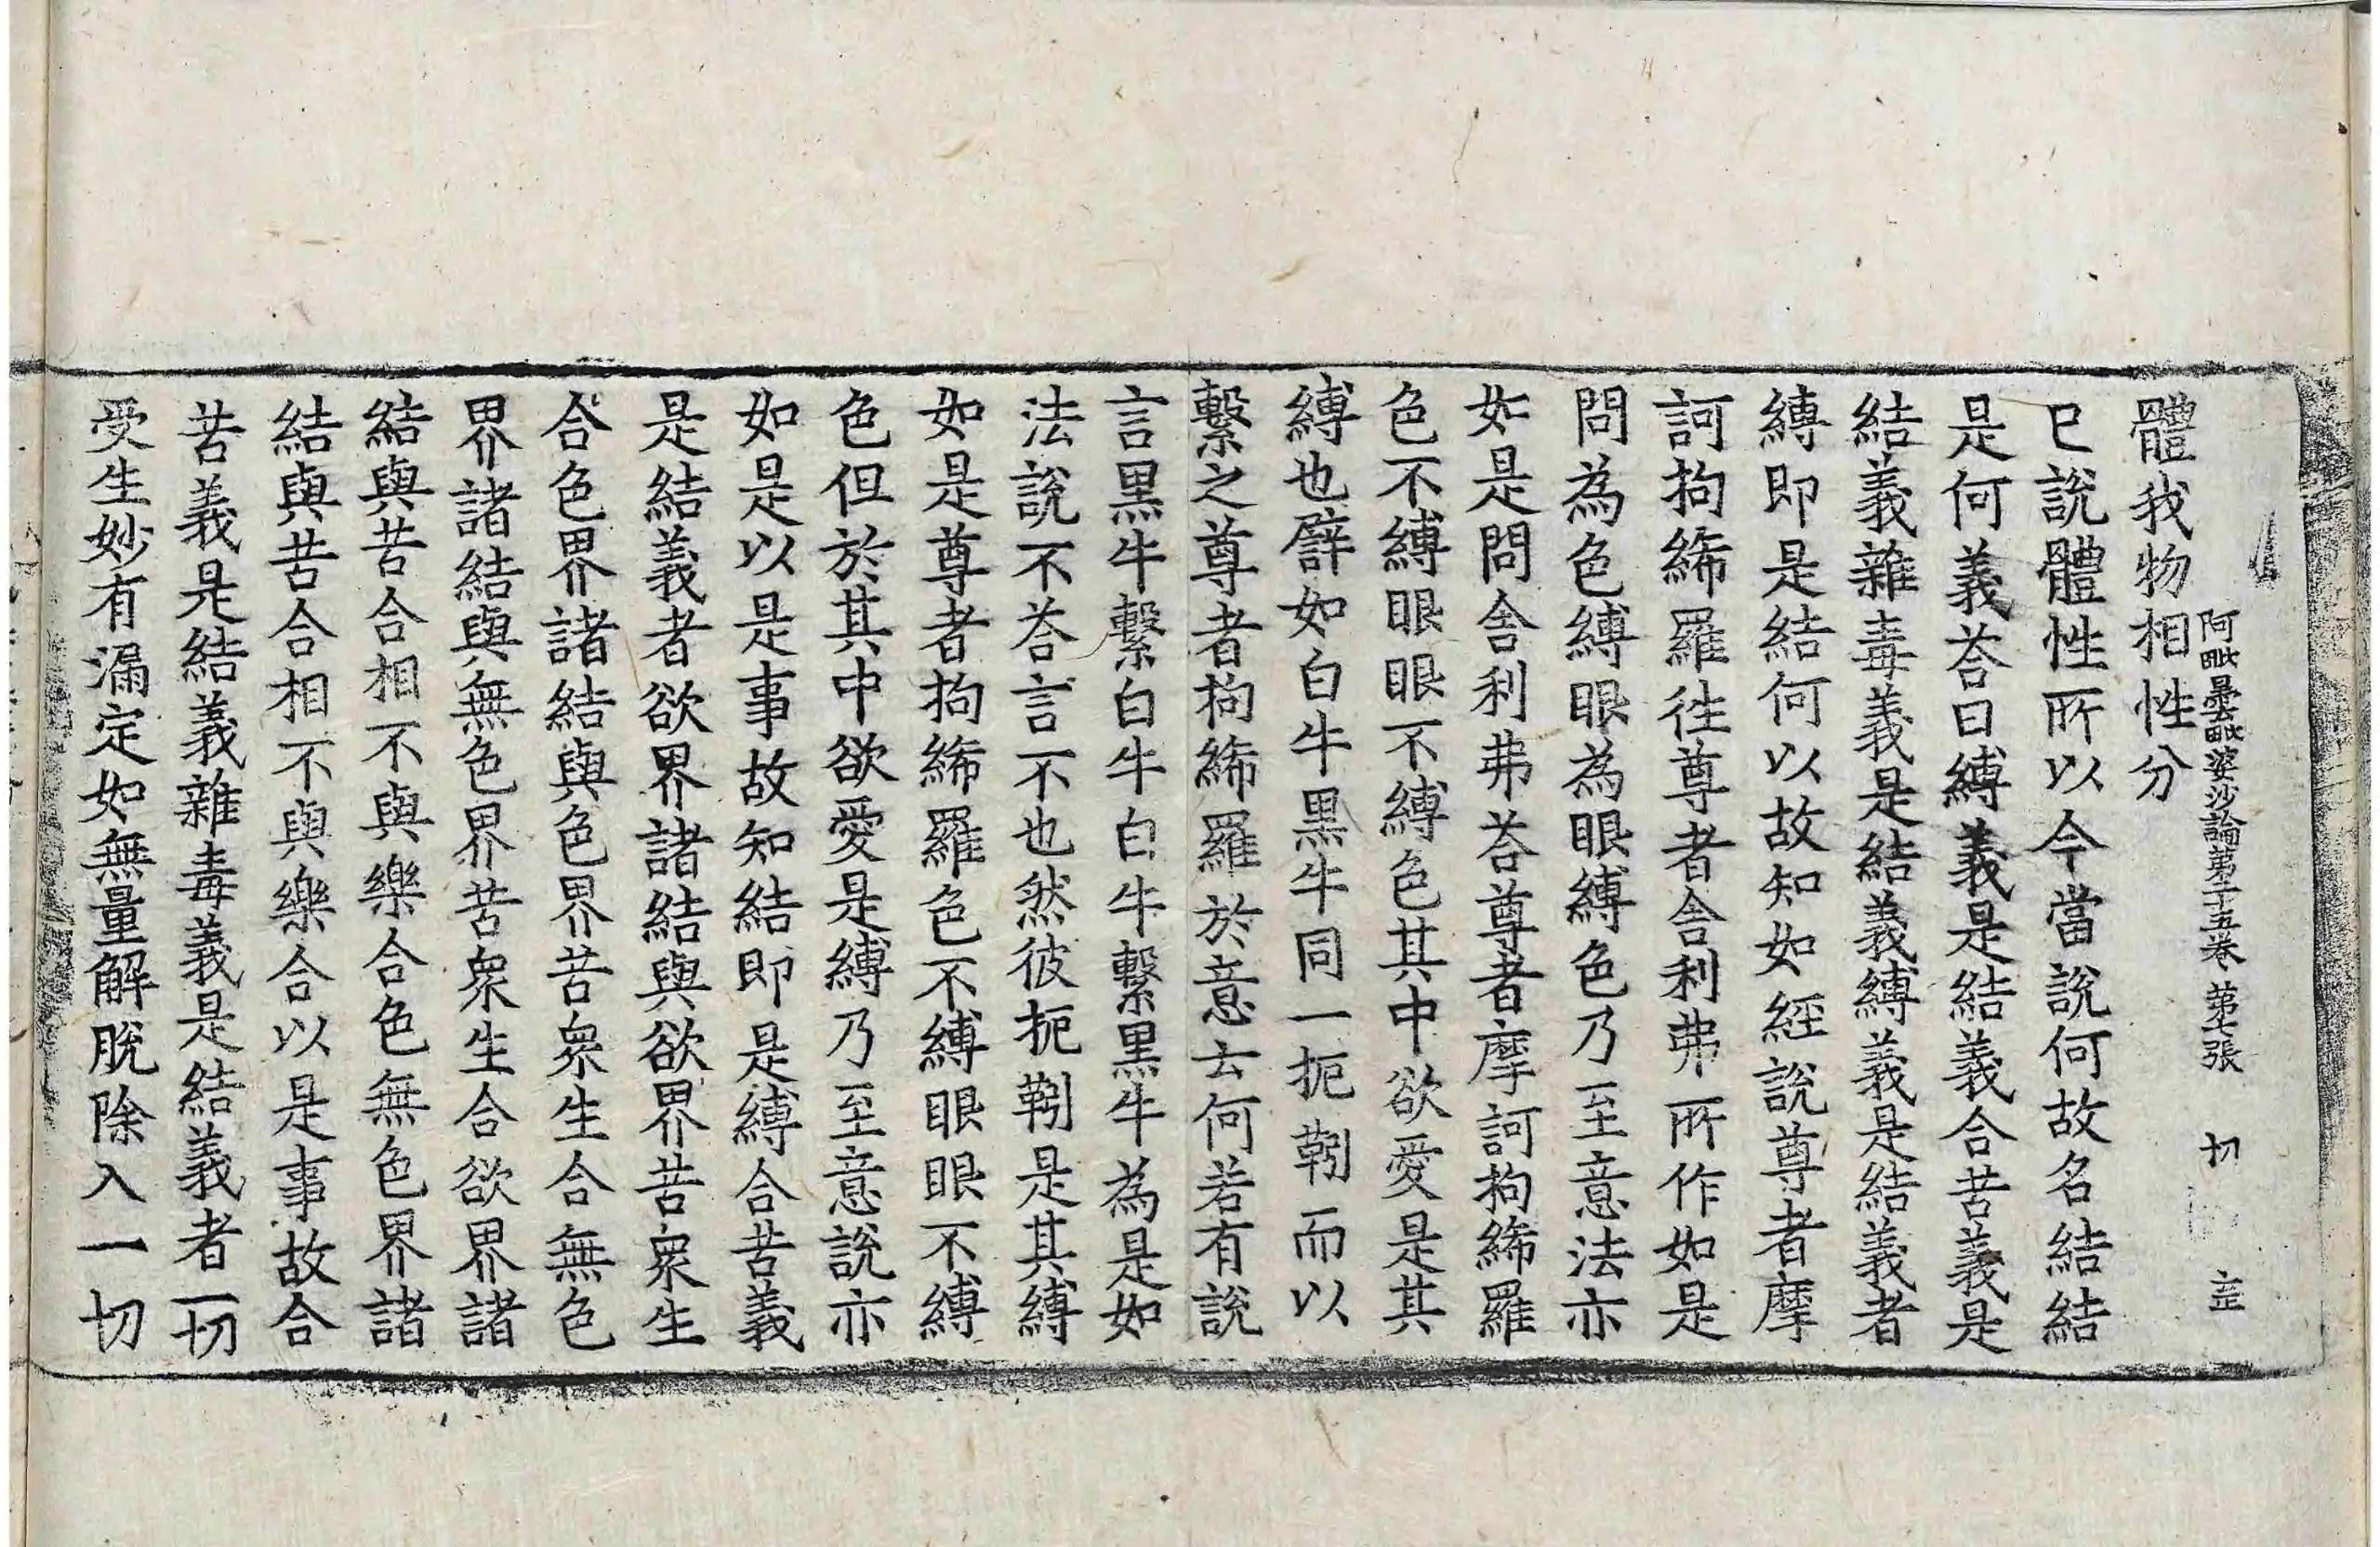 阿毗曇毗婆沙論第二十五卷 第七張 切
體我物相性分
已說體性所以今當說何故名結結
是何義荅曰縛義是結義合苦義是
結義雜毒義是結義縛義是結義者
縛即是結何以故知如經說尊者摩
訶拘絺羅徃尊者舍利弗所作如是
問為色縛眼為眼縛色乃至意法亦
如是問舍利弗荅尊者摩訶拘絺羅
色不縛眼眼不縛色其中欲愛是其
縛也譬如白牛黑牛同一扼靷而以
繫之尊者拘絺羅於意云何若有說
言黑牛繫白牛白牛繫黑牛為是如
法說不荅言不也然彼扼靷是其縛
如是尊者拘絺羅色不縛眼眼不縛
色但於其中欲愛是縛乃至意說亦
如是以是事故知結即是縛合苦義
是結義者欲界諸結與欲界苦衆生
合色界諸結與色界苦衆生合無色
界諸結與無色界苦衆生合欲界諸
結與苦合相不與樂合色無色界諸
結與苦合相不與樂合以是事故合
苦義是結義雜毒義是結義者一切
受生妙有漏定如無量解脫除入一切